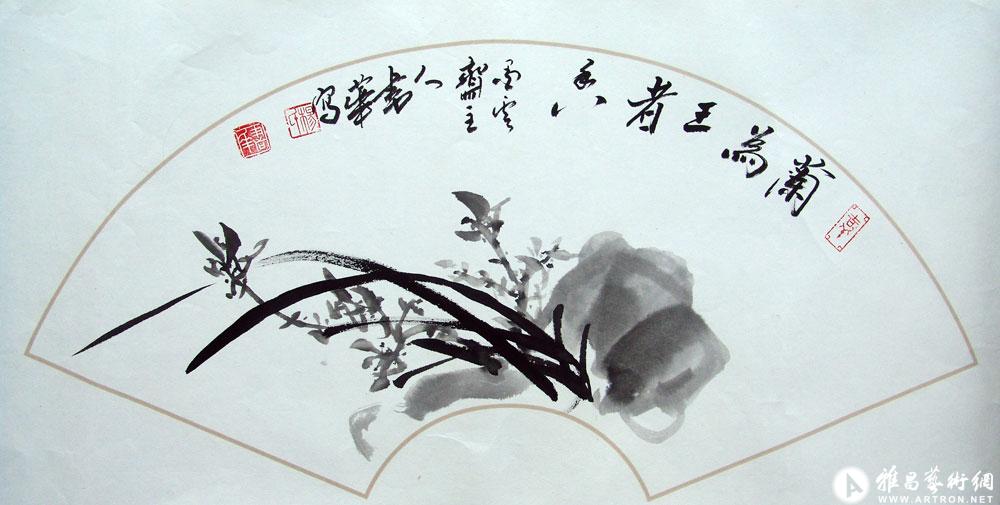 蘭為王者香
墨雲
齋主
人書華寫
雅昌藝術網
WWW.ARTRON.NET